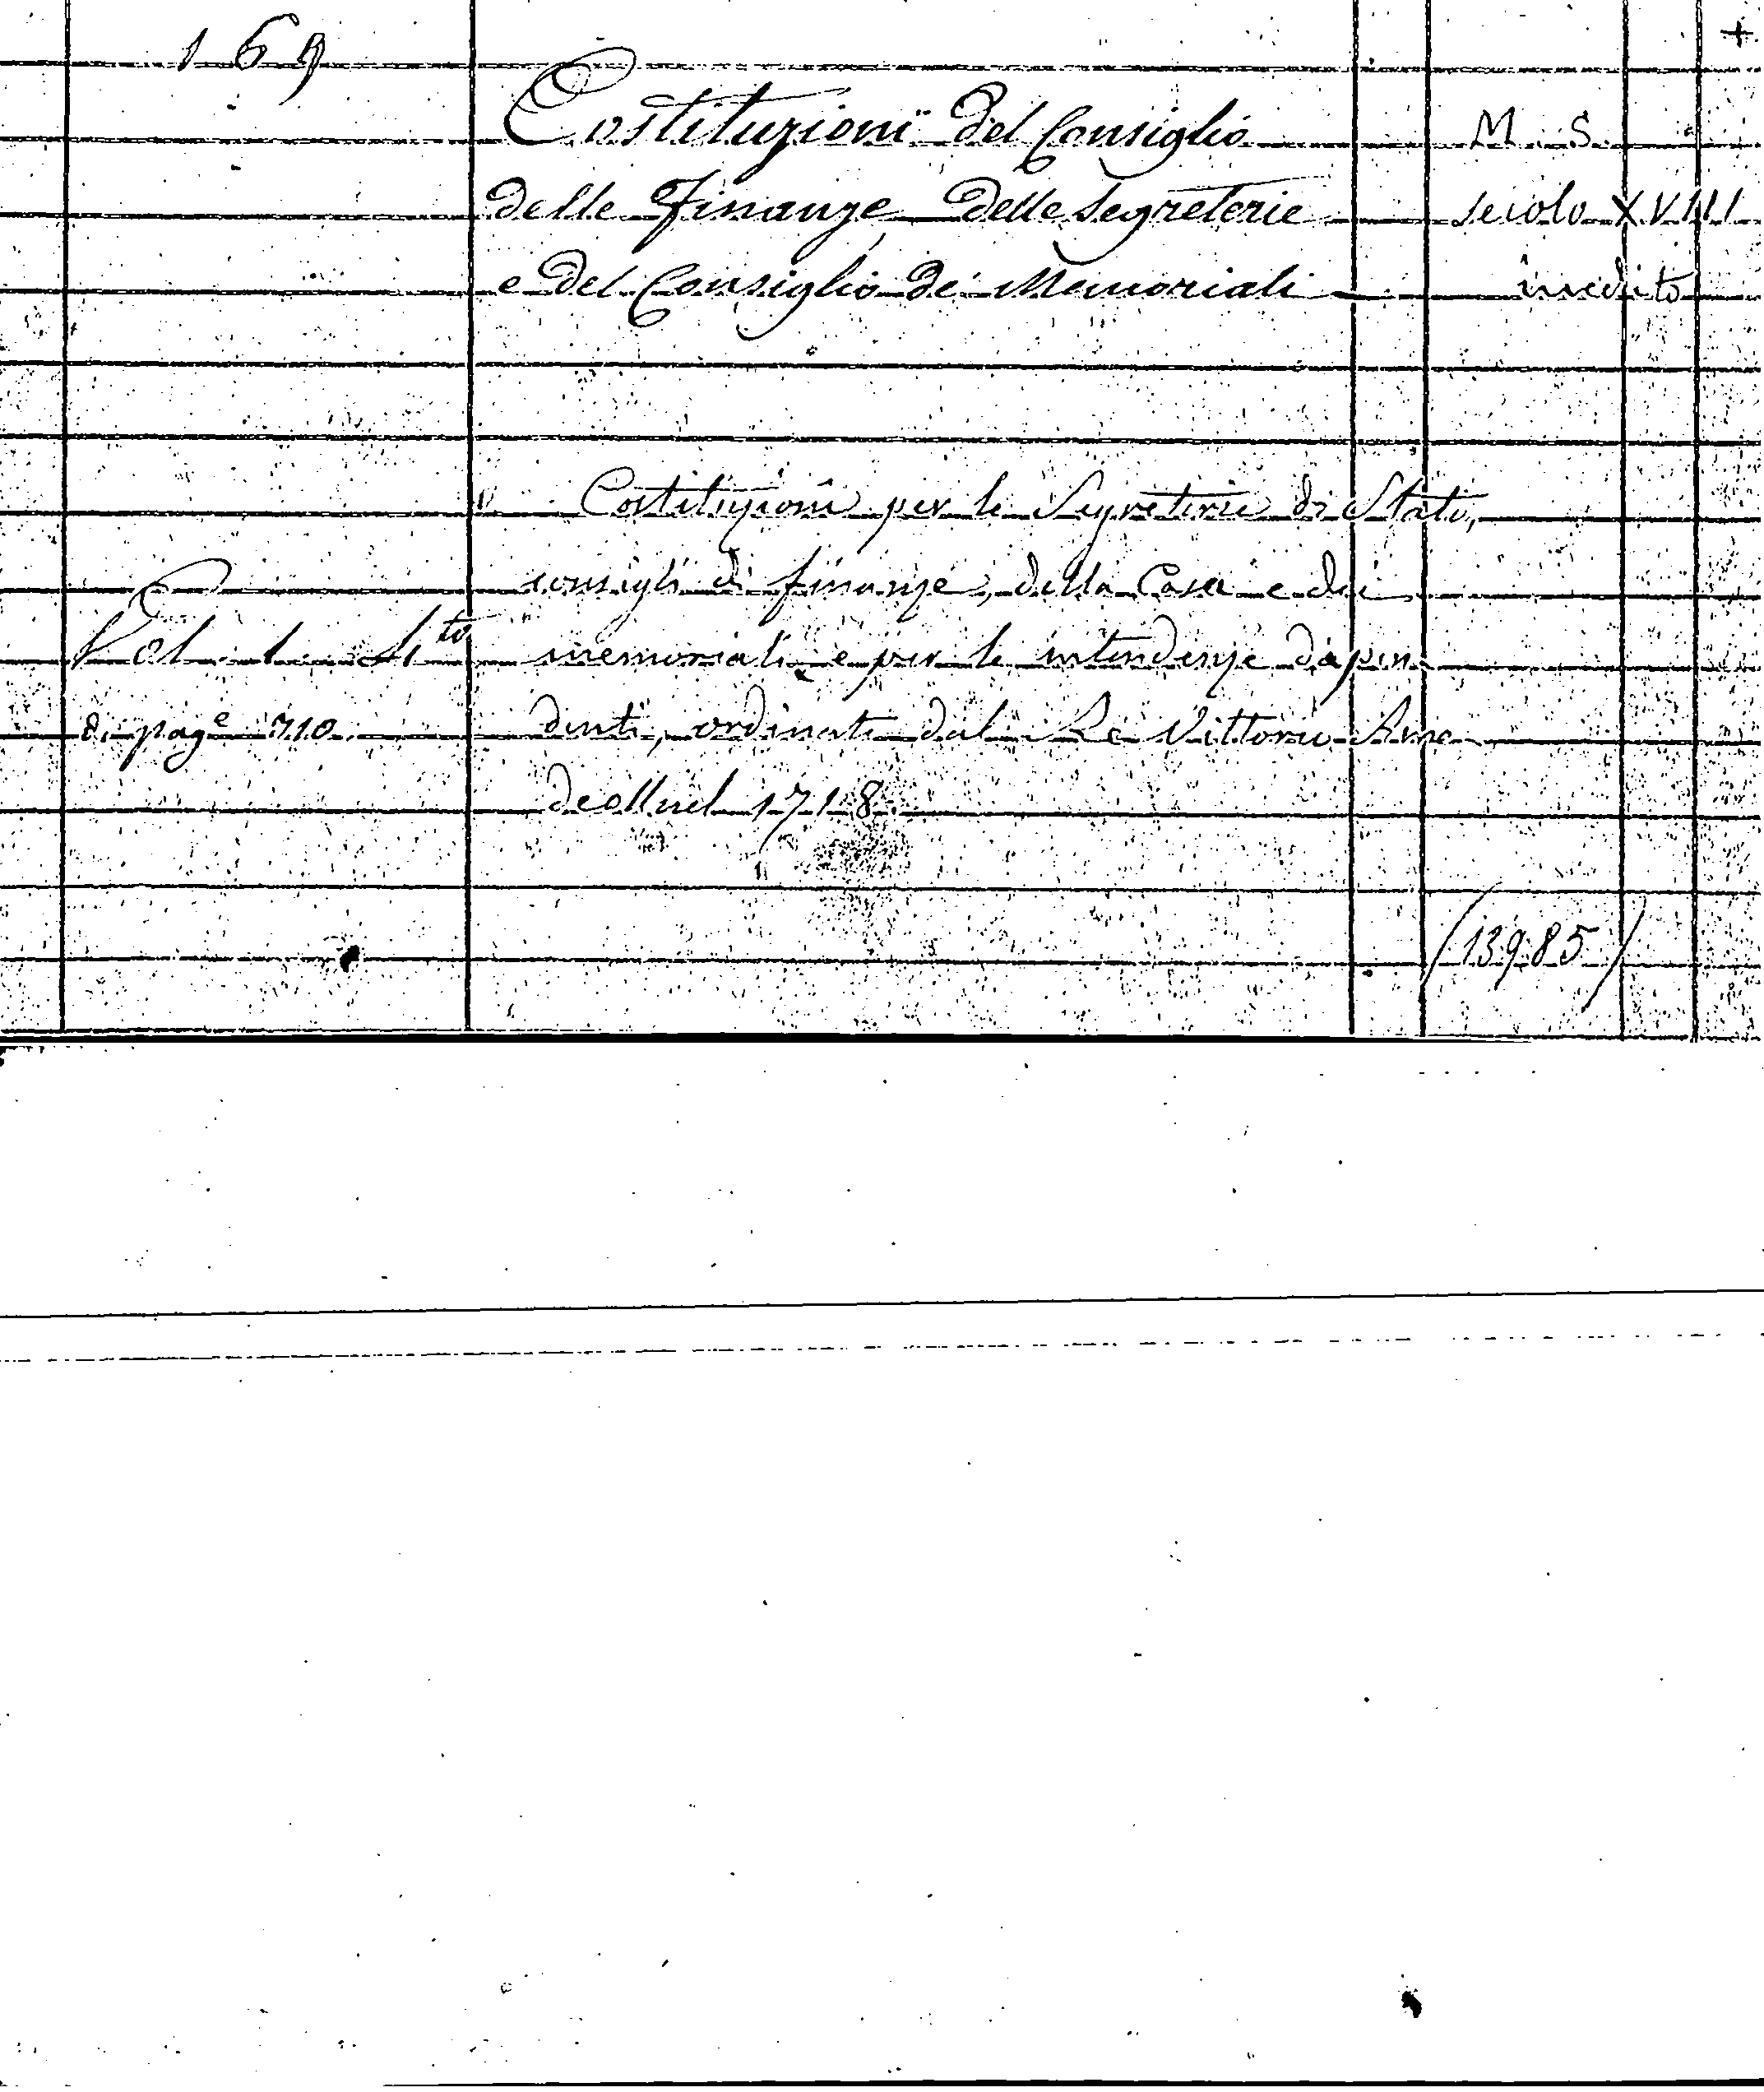 169
+
Costituzioni del Consiglio
M. S.
delle Finanze delle Segreterie
secolo XVIII
e del Consiglio de' Memoriali
inedito
Costituzioni per le Segreterie di Stato,
consigli di finanze, della Casa e dei
Vol. 1. 4to
memoriali e per le intendenze dapen
di page 710.
denti, ordinate dal Re Vittorio Ame
deo II nel 1718.
/13985/